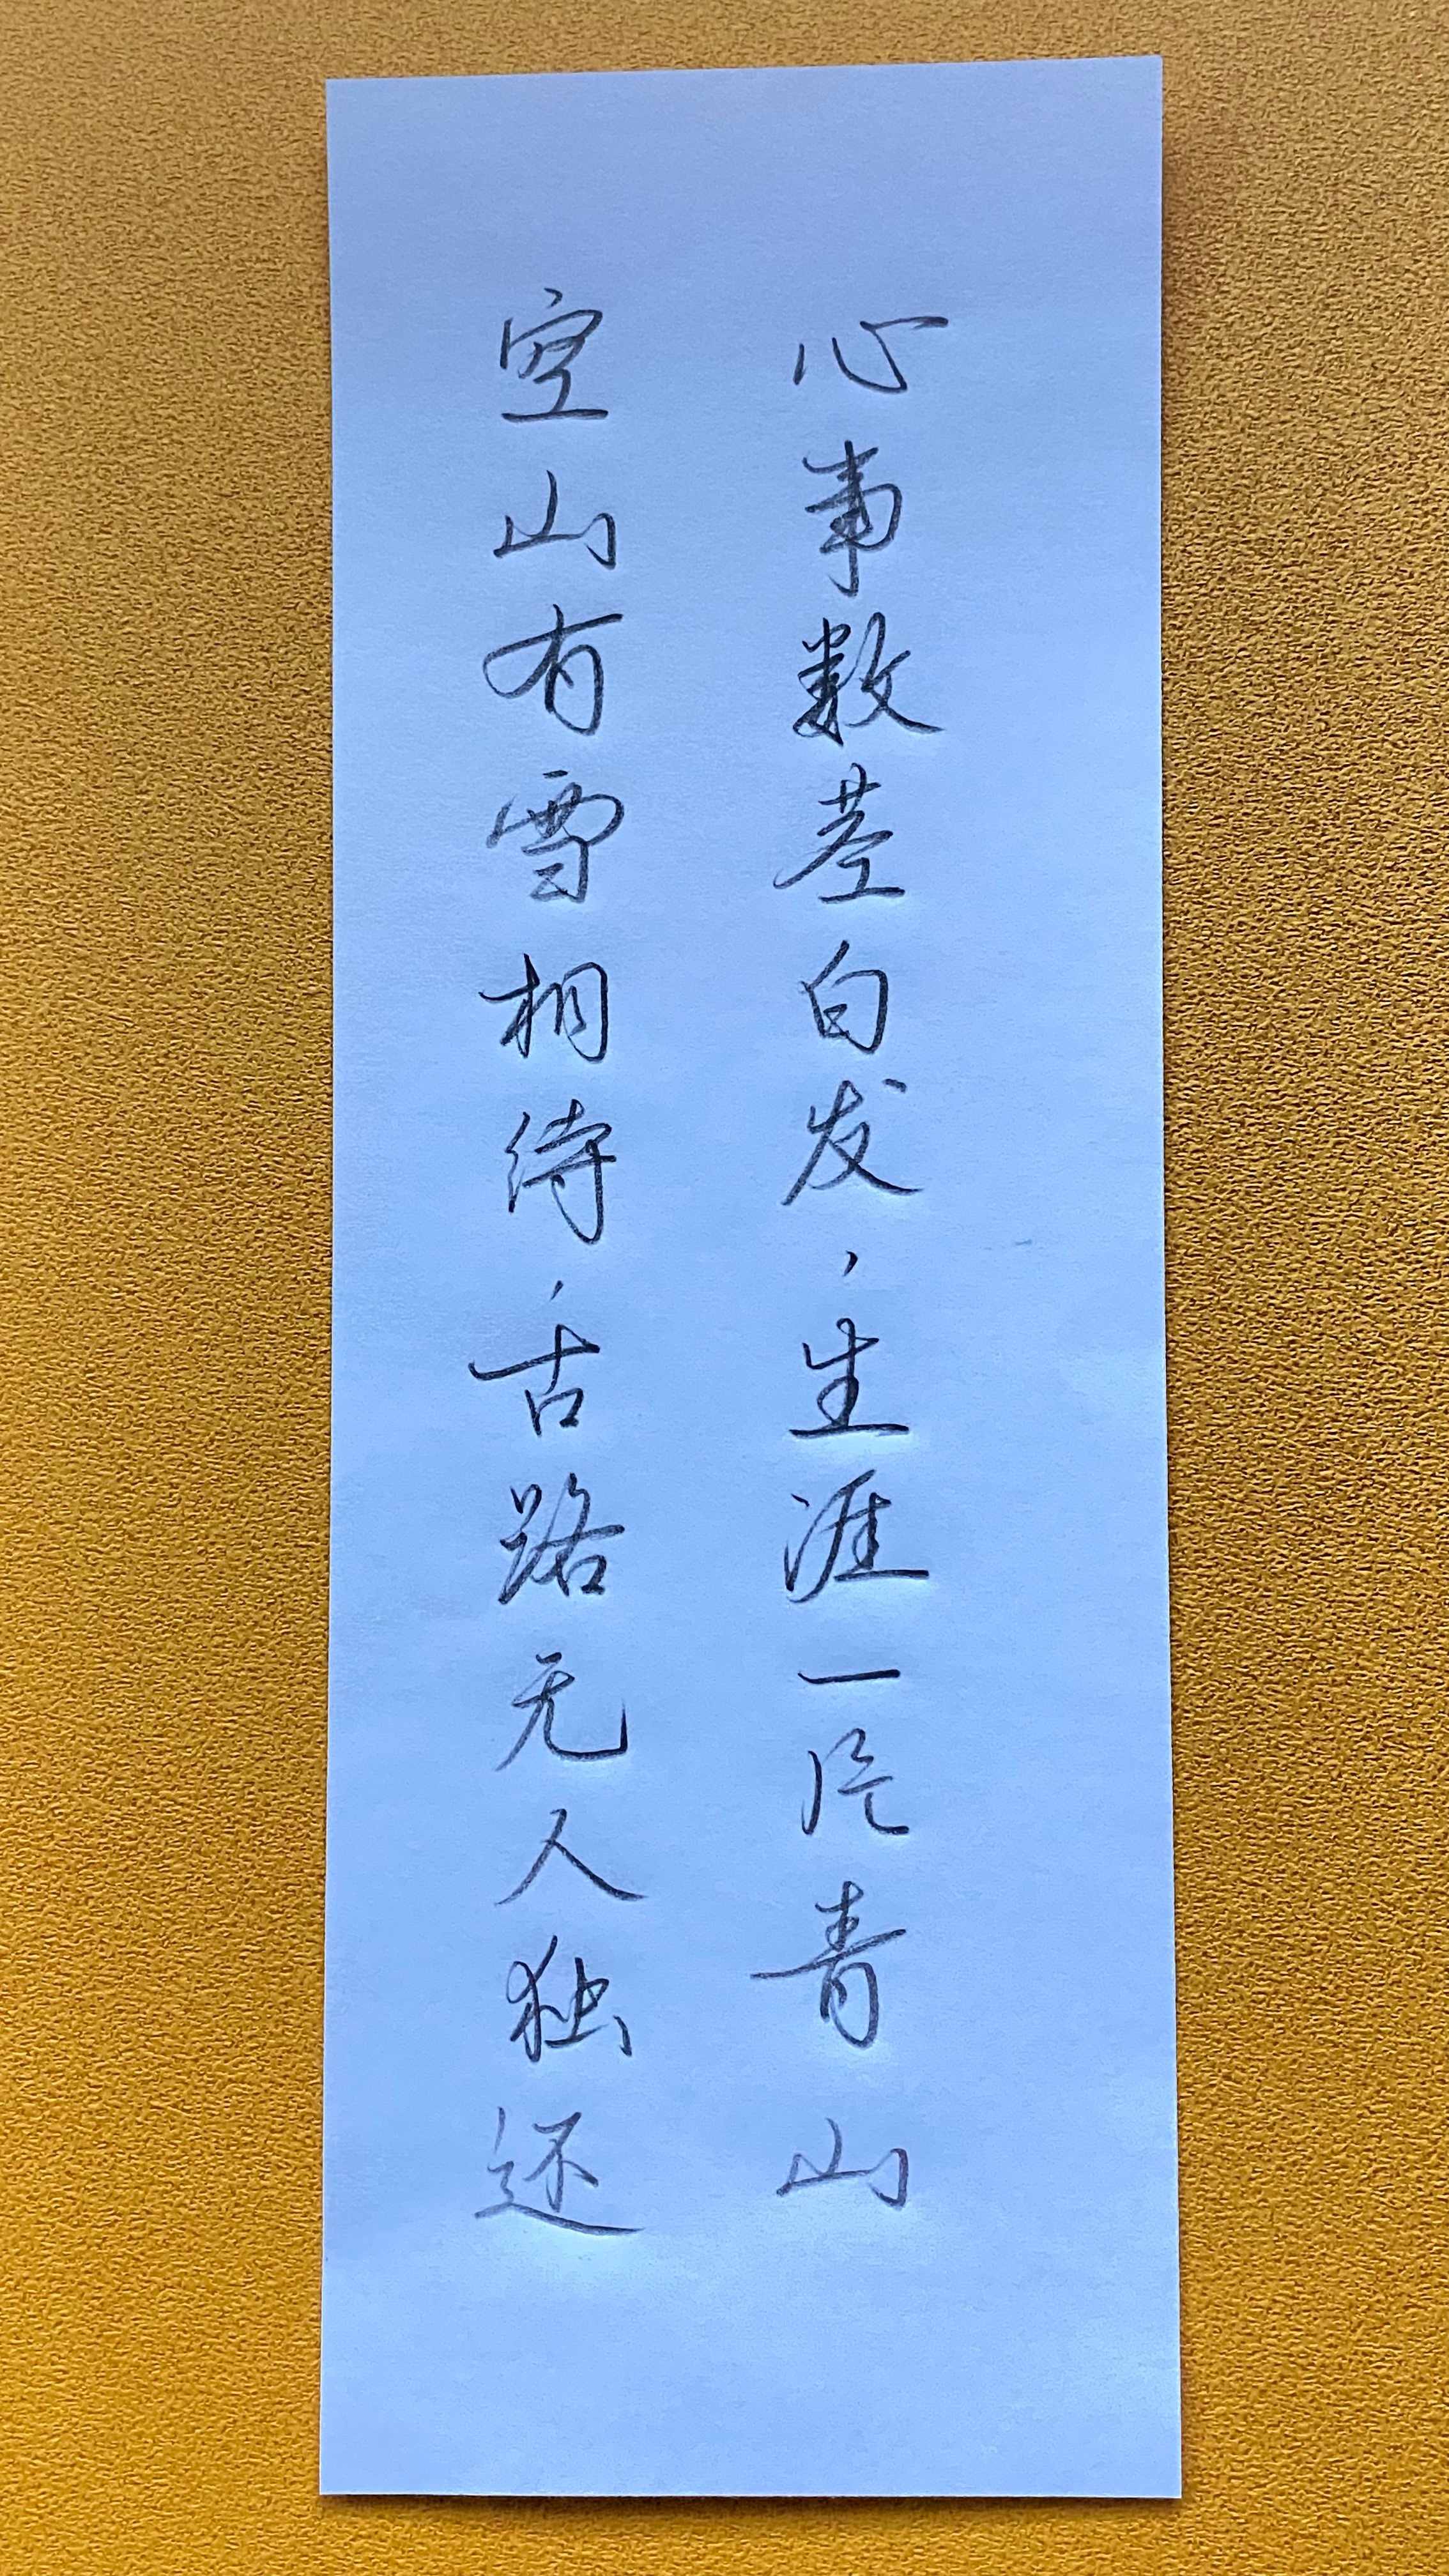 心事数茎白发，生涯一片青山
空山有雪相待，古路无人独还